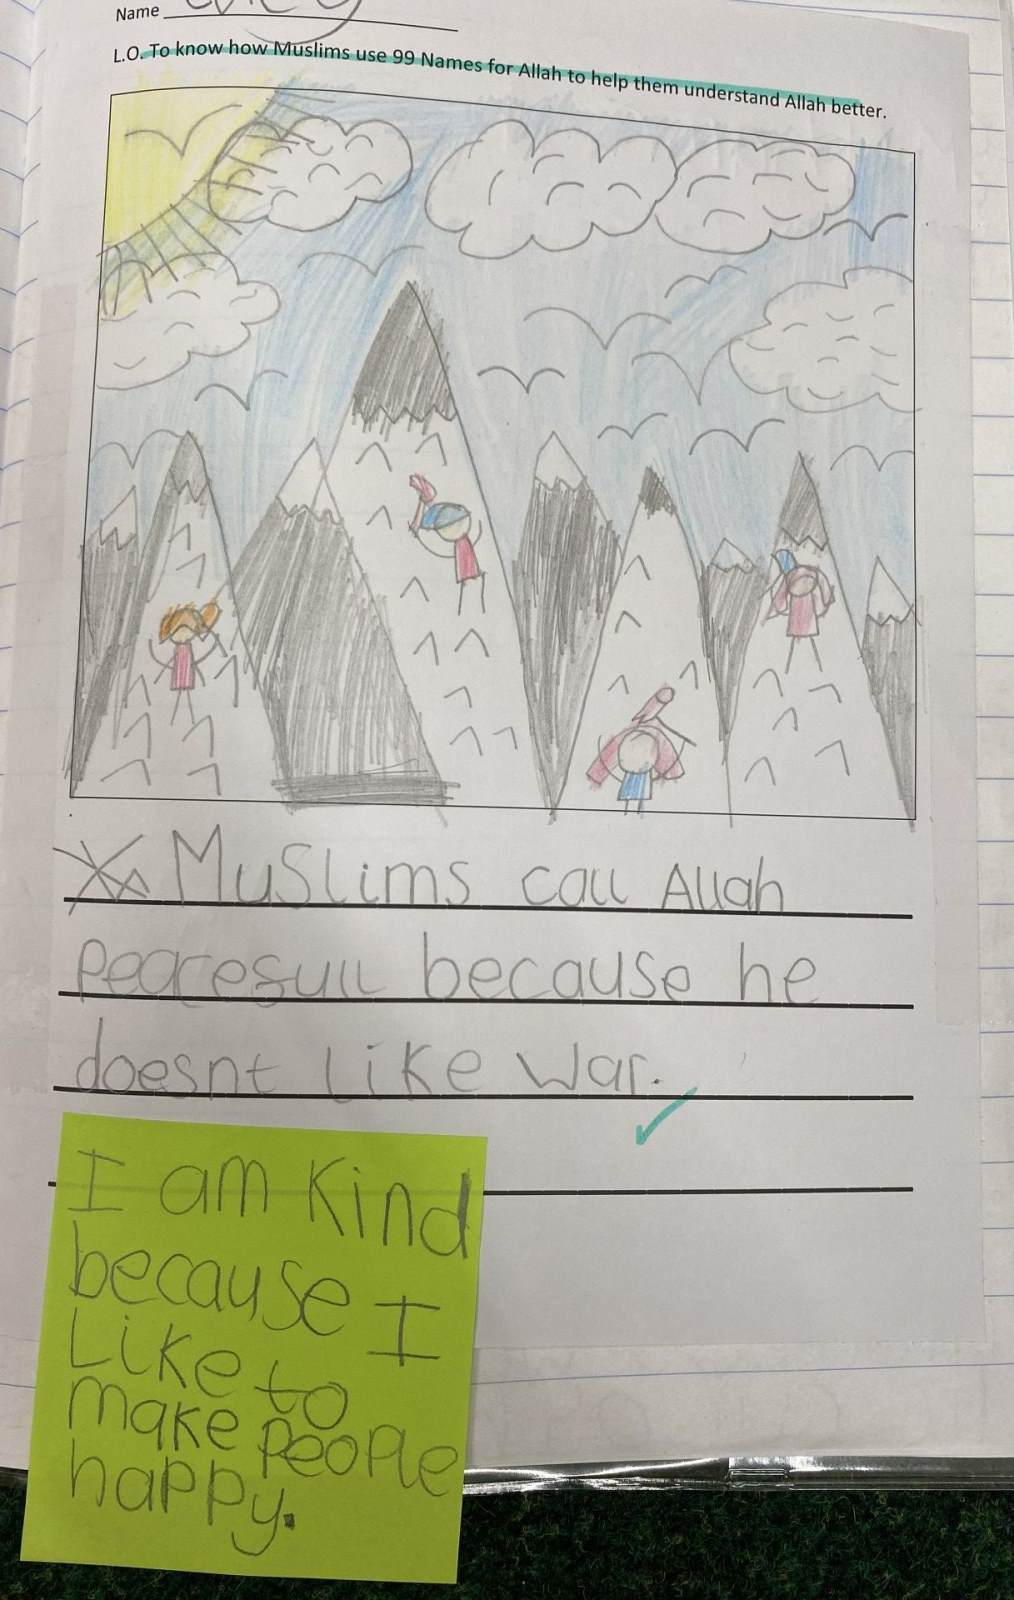 Name
L.O. To know how Muslims use 99 Names for Allah to help them understand Allah better.
Muslims call Allah
peacesull because he
doesnt like war.
I am kind
because I
Like to
make people
happy.